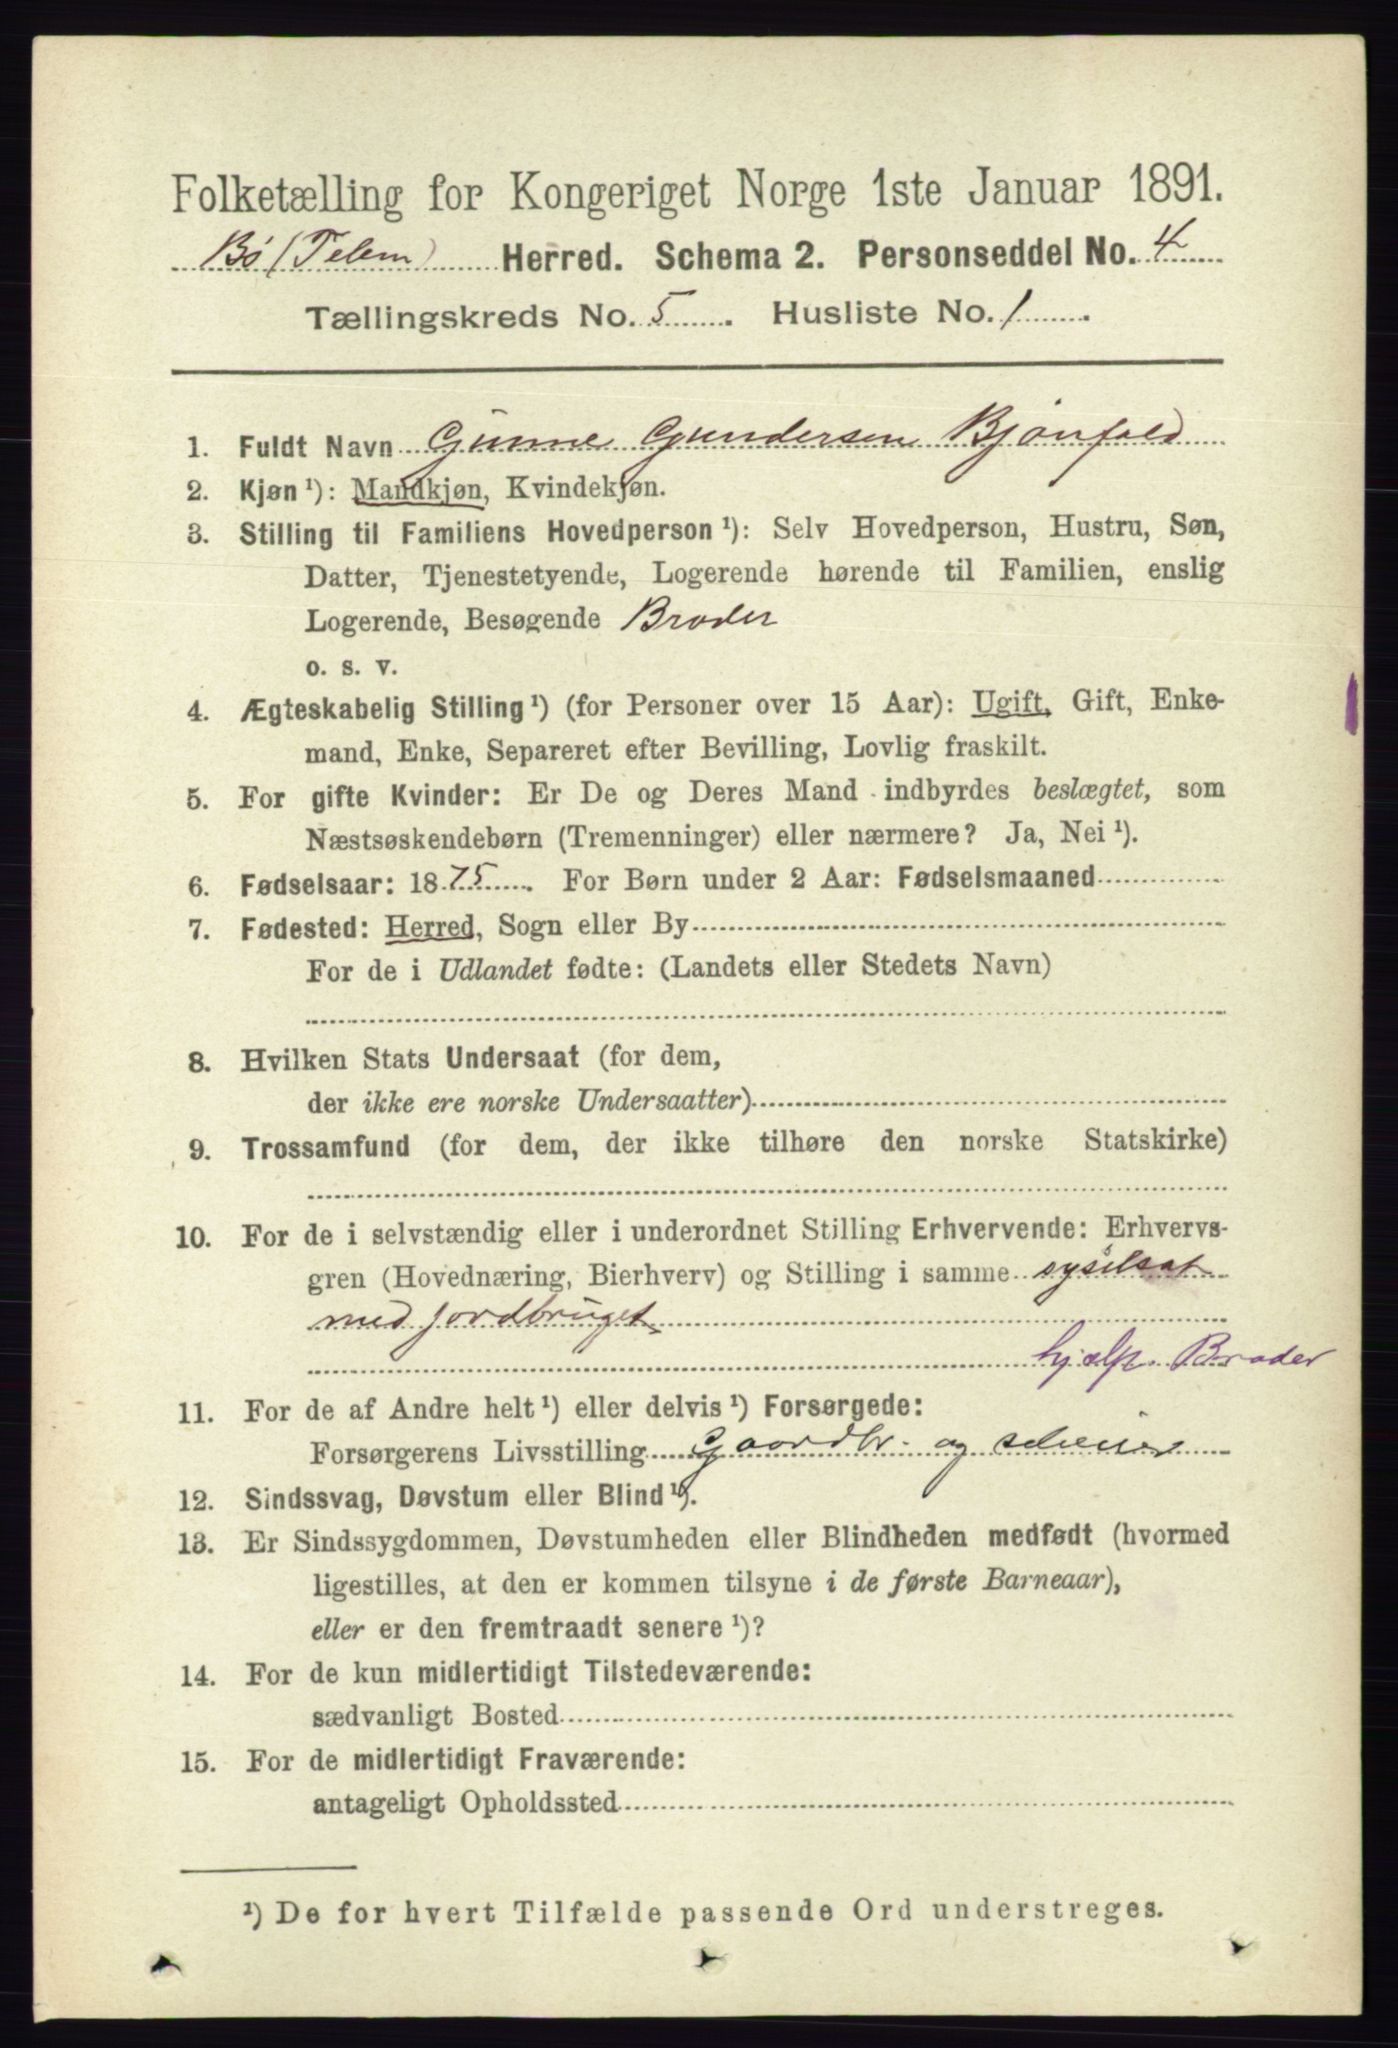 Folketælling for Kongeriget Norge 1ste Januar 1891.
Bø (Telem) Herred. Schema 2. Personseddel No. 4
Tællingskreds No. 5. Husliste No. 1.
1. Fuldt Navn Gunne Gundersen Bjönfald
2. Kjøn ¹): Mandkjøn, Kvindekjøn.
3. Stilling til Familiens Hovedperson ¹): Selv Hovedperson, Hustru, Søn,
Datter, Tjenestetyende, Logerende hørende til Familien, enslig
Logerende, Besøgende Broder
o. s. v.
4. Ægteskabelig Stilling ¹) (for Personer over 15 Aar): Ugift, Gift, Enke-
mand, Enke, Separeret efter Bevilling, Lovlig fraskilt.
5. For gifte Kvinder: Er De og Deres Mand indbyrdes beslægtet, som
Næstsøskendebørn (Tremenninger) eller nærmere? Ja, Nei ¹).
6. Fødselsaar: 1875. For Børn under 2 Aar: Fødselsmaaned
7. Fødested: Herred, Sogn eller By
For de i Udlandet fødte: (Landets eller Stedets Navn)
8. Hvilken Stats Undersaat (for dem,
der ikke ere norske Undersaatter)
9. Trossamfund (for dem, der ikke tilhøre den norske Statskirke)
10. For de i selvstændig eller i underordnet Stilling Erhvervende: Erhvervs-
gren (Hovednæring, Bierhverv) og Stilling i samme sysselsat
med jordbruget
hjælp. Broder
11. For de af Andre helt ¹) eller delvis ¹) Forsørgede:
Forsørgerens Livsstilling Gaardbr. og
12. Sindssvag, Døvstum eller Blind ¹).
13. Er Sindssygdommen, Døvstumheden eller Blindheden medfødt (hvormed
ligestilles, at den er kommen tilsyne i de første Barneaar),
eller er den fremtraadt senere ¹)?
14. For de kun midlertidigt Tilstedeværende:
sædvanligt Bosted
15. For de midlertidigt Fraværende:
antageligt Opholdssted
¹) De for hvert Tilfælde passende Ord understreges.